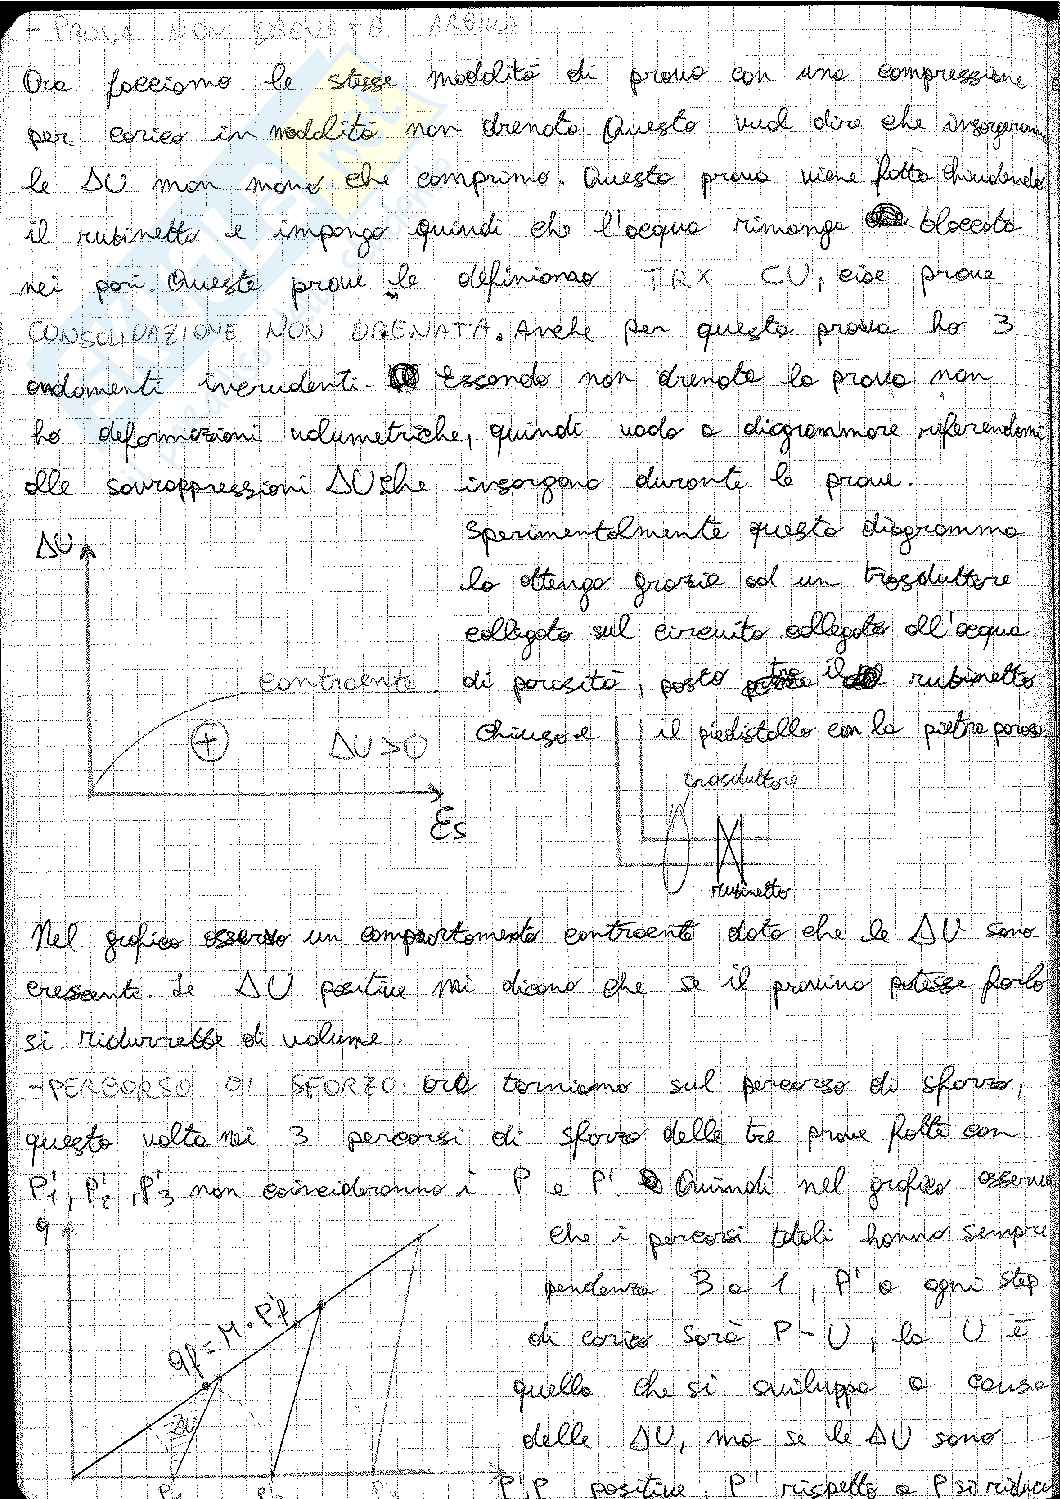 - PROVA NON DRENATA
Ora facciamo le stesse modalità di prova con una compressione
per carico in modalità non drenata Questo vuol dire che insorgeranno
le ΔU man mano che comprimo. Questa prova viene fatta chiudendo
il rubinetto e impongo quindi che l'acqua rimanga bloccata
nei pori. Queste prove le definiamo TRX CU, cioè prove
CONSOLIDAZIONE NON DRENATA. Anche per questa prova ho 3
andamenti Essendo non drenata la prova non
ho deformazioni volumetriche, quindi vado a diagrammare riferendomi
alle sovrappressioni ΔU che insorgono durante le prove.
Sperimentalmente questo diagramma
lo ottengo grazie ad un trasduttore
collegato sul circuito collegato all'acqua
di porosità, posto tra il rubinetto
chiuso e il piedistallo con la pietra porosa
ΔU
contraente
+ ΔU>0
εs
trasduttore
rubinetto
Nel grafico osservo un comportamento contraente dato che le ΔU sono
crescenti. Le ΔU positive mi dicono che se il provino potesse farlo
si ridurrebbe di volume.
- PERCORSO DI SFORZO ora torniamo sul percorso di sforzo,
questa volta nei 3 percorsi di sforzo delle tre prove fatte con
P'1, P'2, P'3 non coincideranno i P e P' Quindi nel grafico osservo
che i percorsi totali hanno sempre
pendenza 3 a 1, P' a ogni step
di carico sarà P-U, la U è
quella che si sviluppa a causa
delle ΔU, ma se le ΔU sono
positive P' rispetto a P si riduce
q
qf = M · P'f
P', P